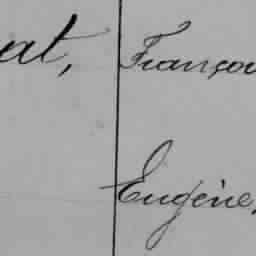 at, Françoi
Eugène,